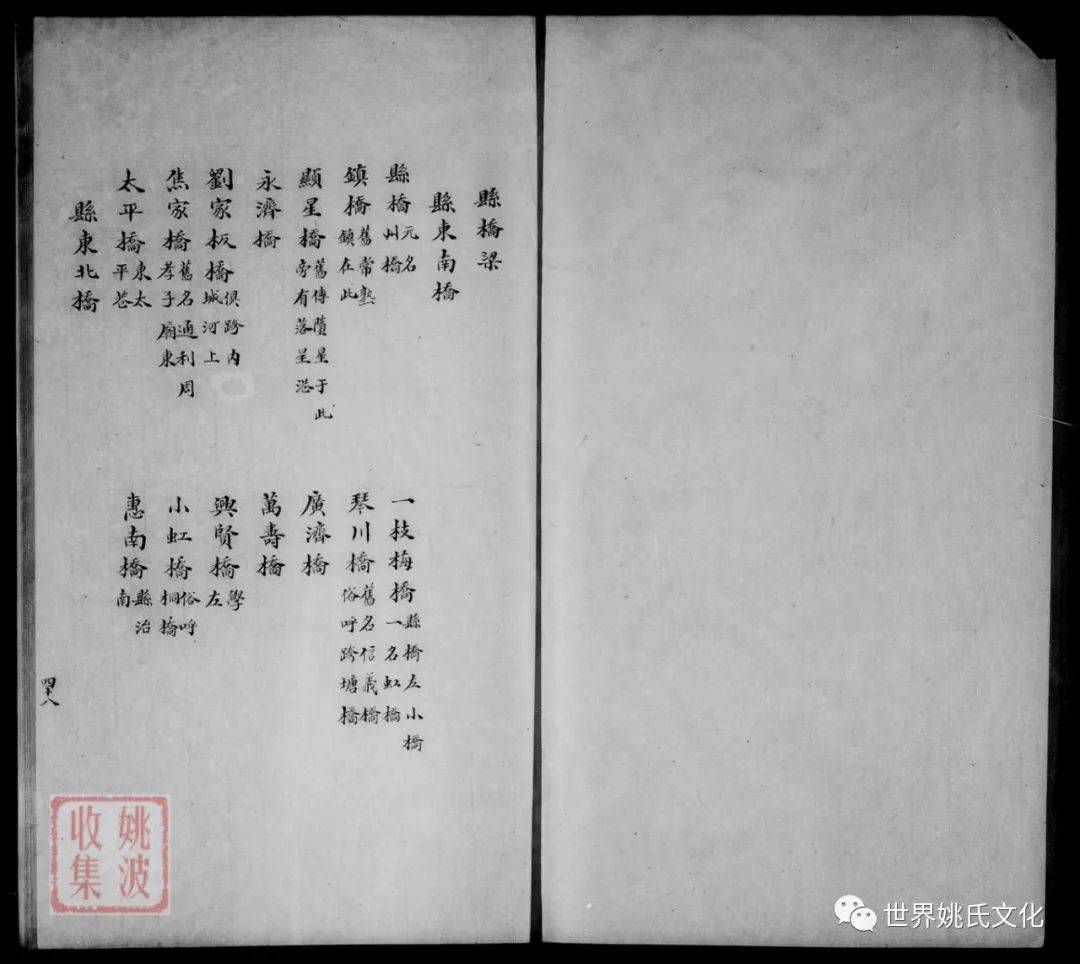 縣橋梁
縣東南橋
縣橋 元名州橋 一枝梅橋 縣橋左小橋一名虹橋
鎮橋 舊常熟鎮在此 琴川橋 舊名信義橋俗呼跨塘橋
顯星橋 舊傳隕星于此旁有落星港 廣濟橋
永濟橋 萬壽橋
劉家板橋 俱跨內城河上 興賢橋 學左
焦家橋 舊名通利周孝子廟東 小虹橋 俗呼桐橋
太平橋 東太平巷 惠南橋 縣治南
縣東北橋
四十八
姚波
收集
世界姚氏文化